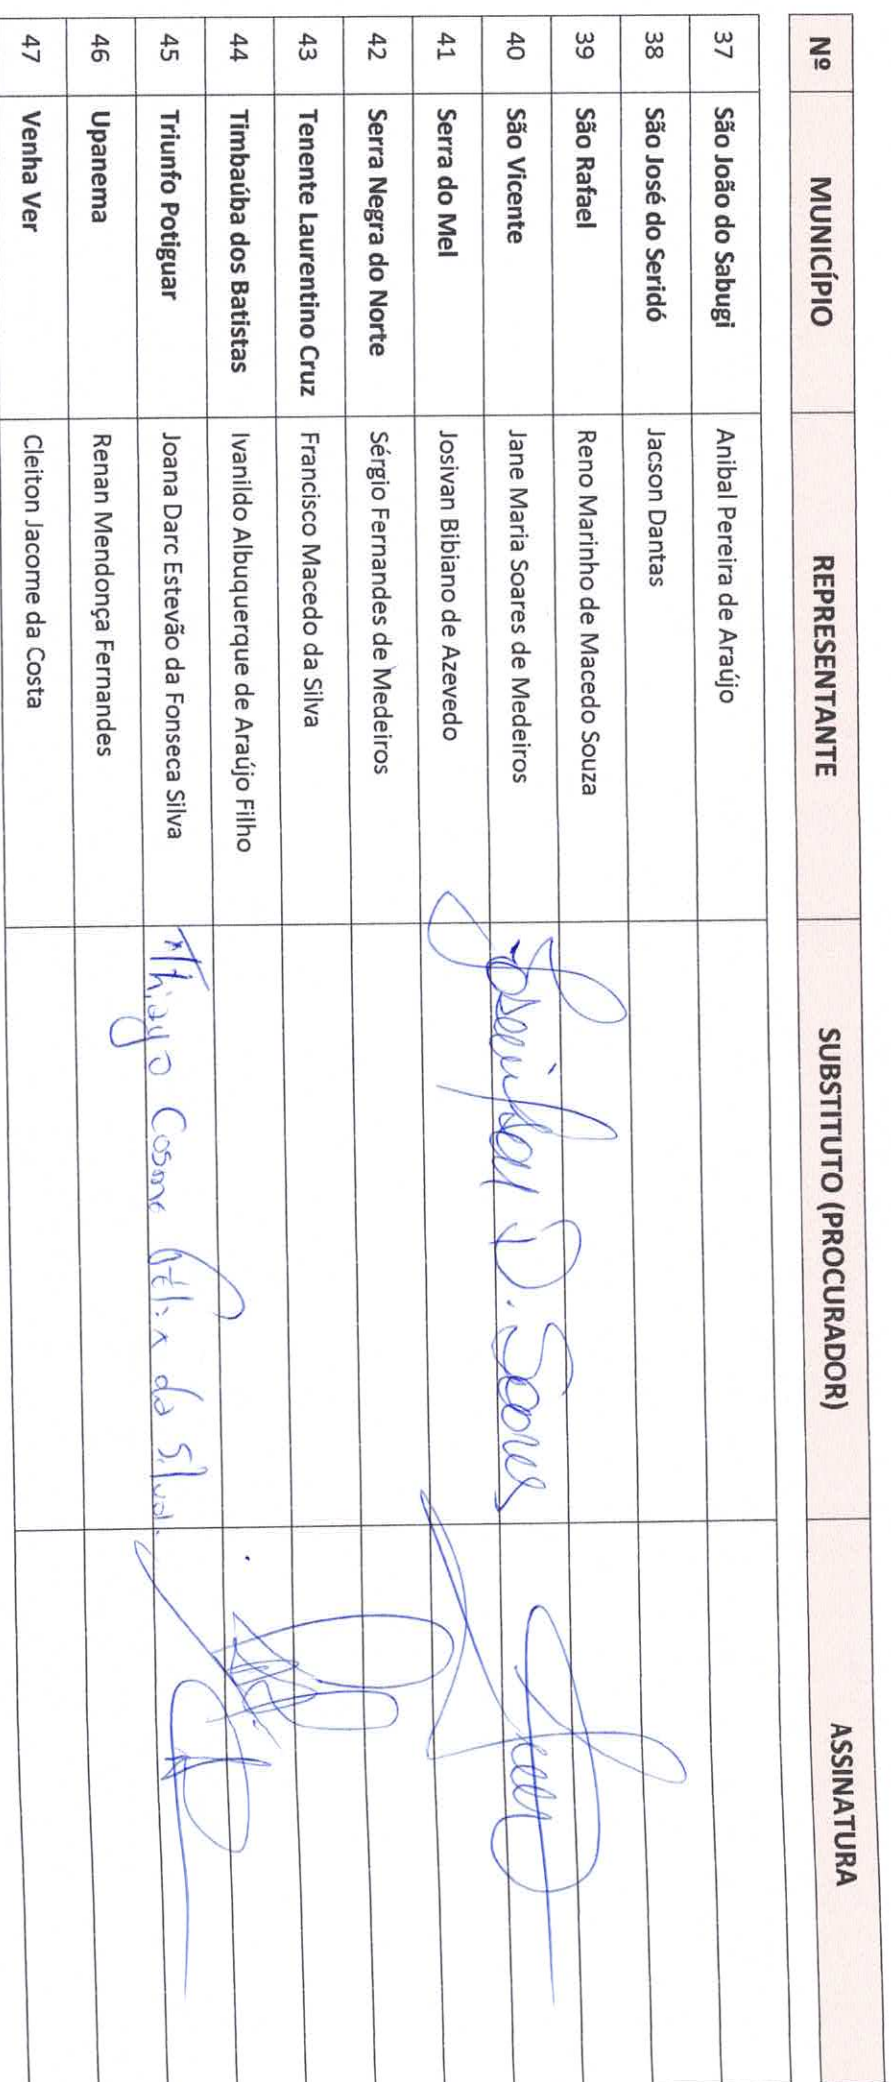 Nº MUNICÍPIO REPRESENTANTE SUBSTITUTO (PROCURADOR) ASSINATURA
37 São João do Sabugi Anibal Pereira de Araújo
38 São José do Seridó Jacson Dantas
39 São Rafael Reno Marinho de Macedo Souza
40 São Vicente Jane Maria Soares de Medeiros D. Soares
41 Serra do Mel Josivan Bibiano de Azevedo
42 Serra Negra do Norte Sérgio Fernandes de Medeiros
43 Tenente Laurentino Cruz Francisco Macedo da Silva
44 Timbaúba dos Batistas Ivanildo Albuquerque de Araújo Filho
45 Triunfo Potiguar Joana Darc Estevão da Fonseca Silva Thiago Cosme Félix da Silva.
46 Upanema Renan Mendonça Fernandes
47 Venha Ver Cleiton Jacome da Costa